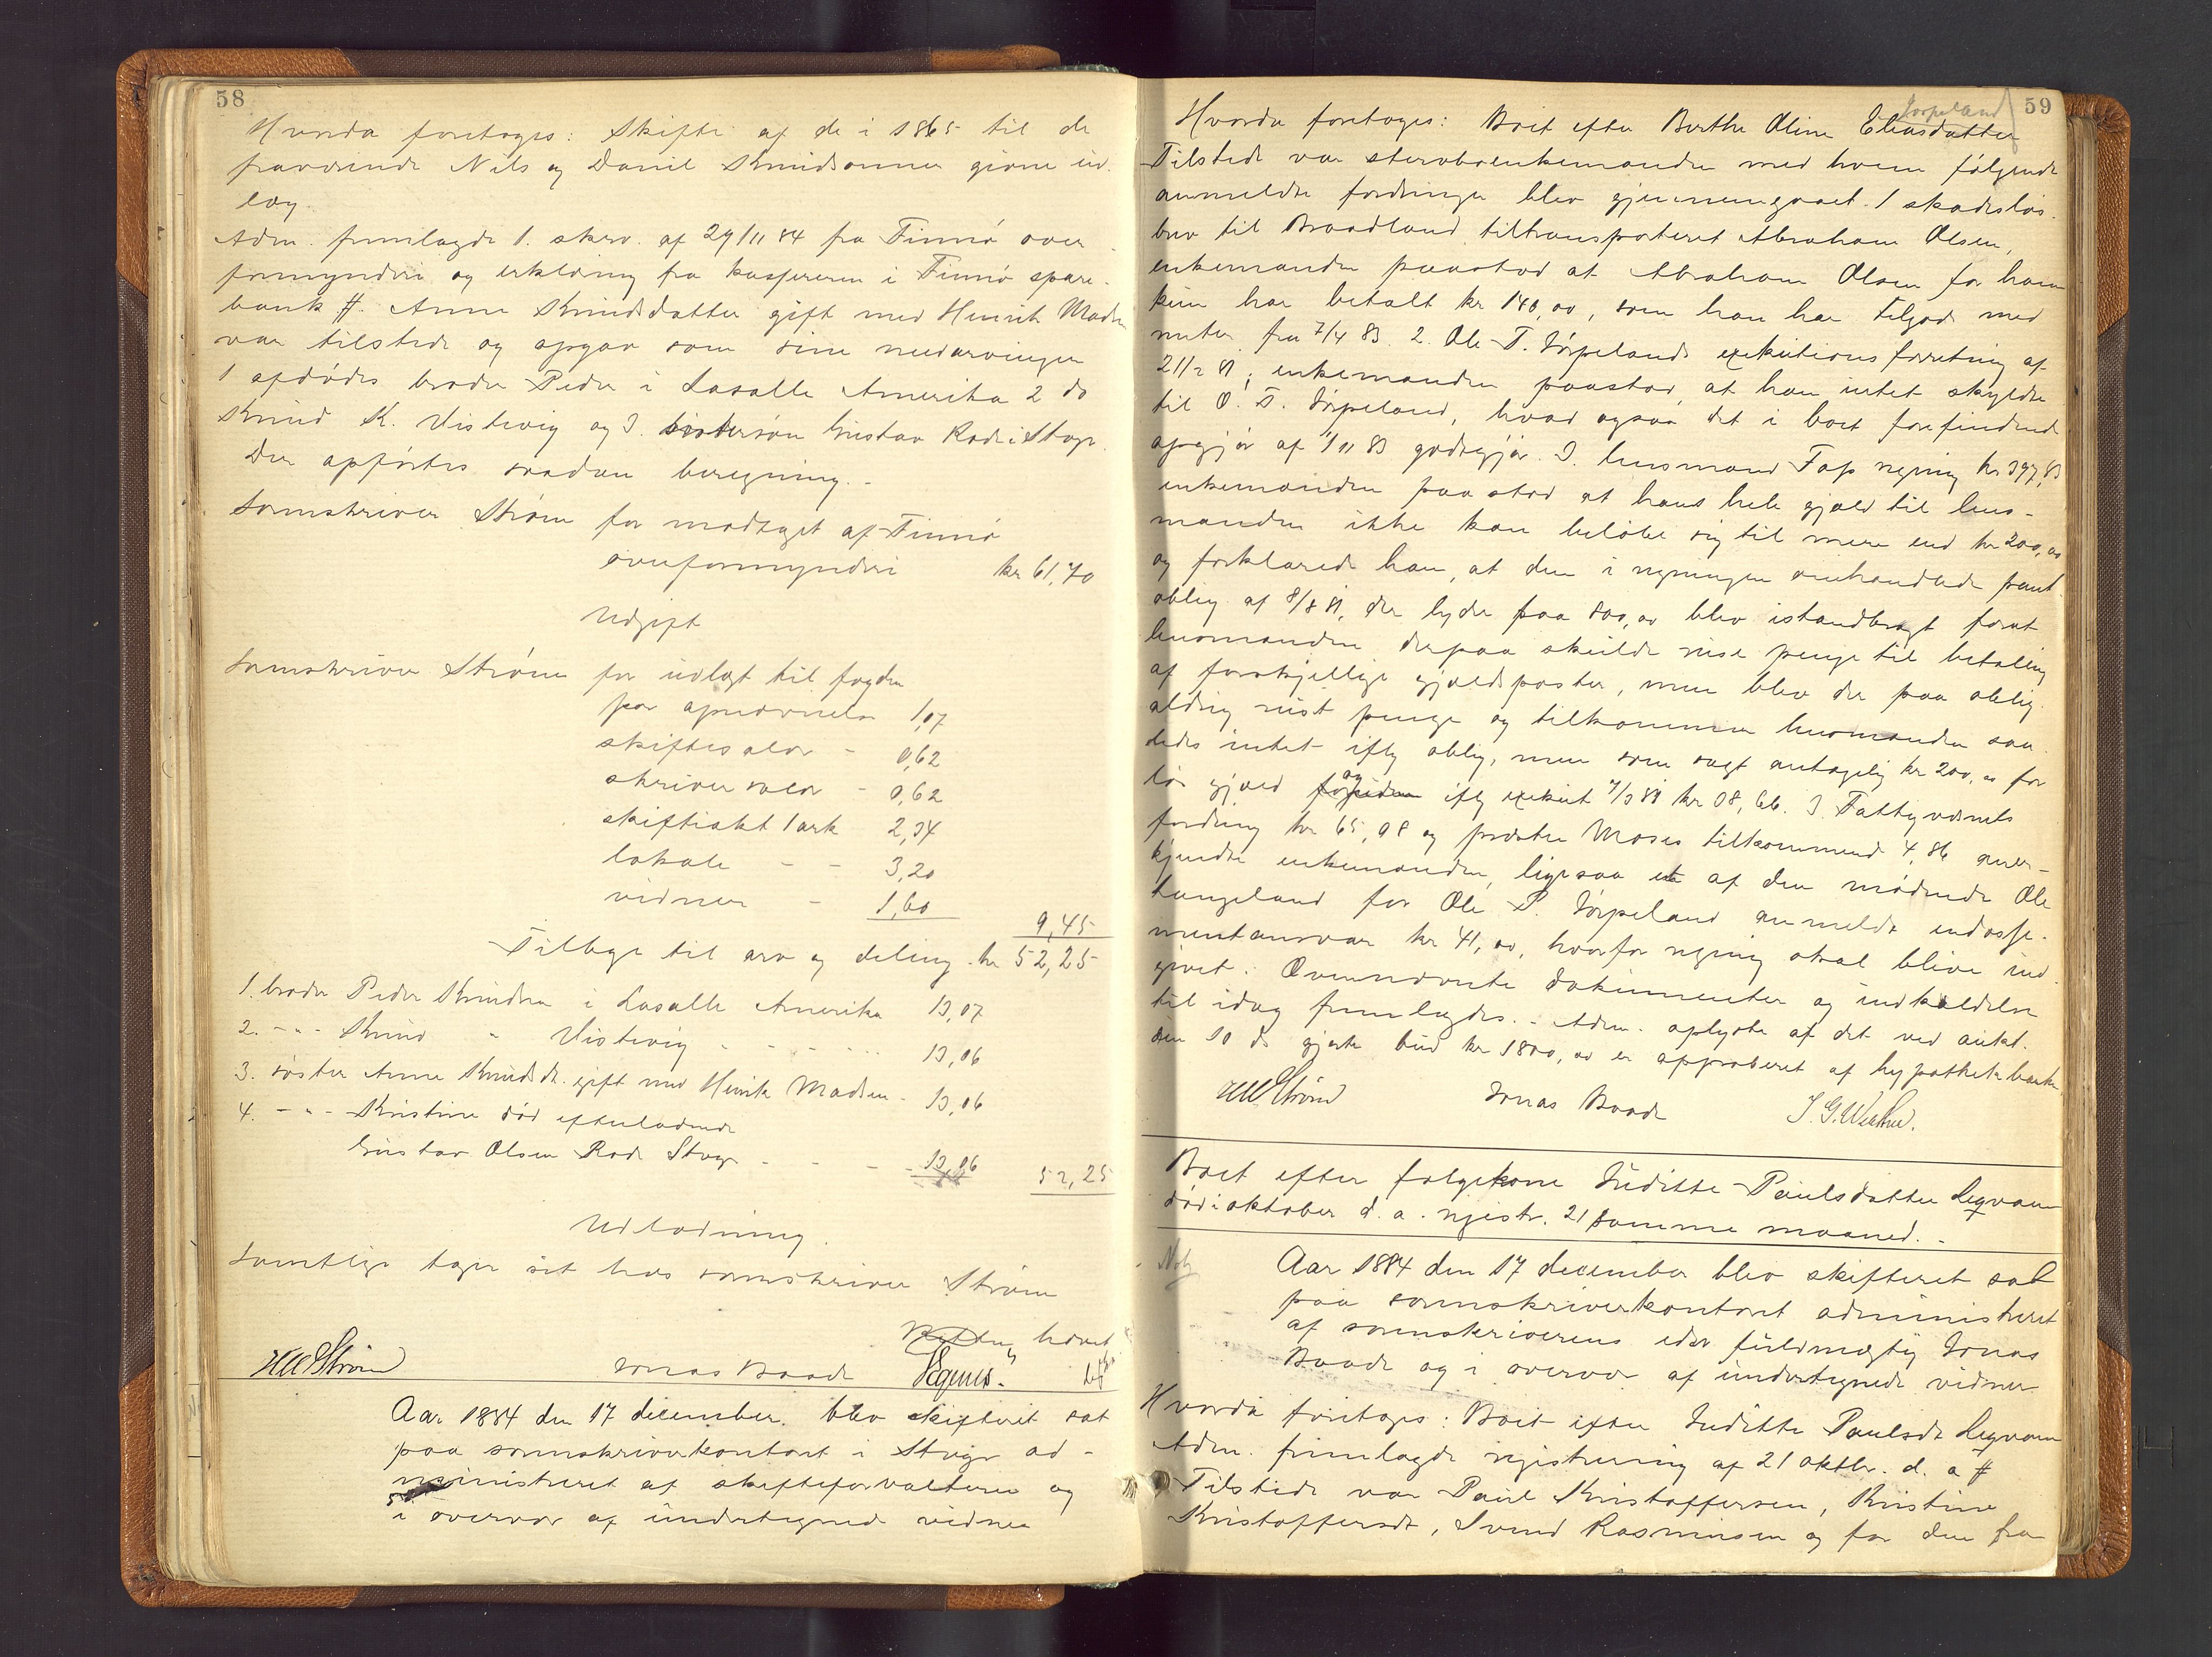 58
Hvorda foretoges: Skifte af de i 1865 til de
fraværende Nils og Daniel Knudsønner givne ud-
læg.
Adm. fremlagde 1. skriv. af 29/11 84 fra Finnø over-
formynderi og erklæring fra kassereren i Finnø spare-
bank #. Anne Knudsdatter gift med Henrik Madsen
var tilstede og opgav som sine medarvinger
1 afdødes broder Peder i Lasalle Amerika 2 do
Knud K. Vistvig og 3. søstersøn Gustav Rode i Stav.
Der opførtes saadan beregning. -
Sorenskriver Strøm for modtaget af Finnø
overformynderi kr 61,70
Udgift
Sorenskriver Strøm for udlagt til fogden
for opnævnelse 1,07
skiftesalær - 0,62
skriversalær - 0,62
skifteakt 1 ark 2,34
lokale - - 3,20
vidner - 1,60
9,45
Tilbage til arv og deling kr 52,25
1. broder Peder Knudsen i Lasalle Amerika 13,07
2. - " - Knud " Vistvig - - - - 13,06
3. søster Anne Knudsdr. gift med Henrik Madsen - 13,06
4. - " - Kristine død efterladende
Gustav Olsen Rode Stvgr - - - 13,06 52,25
Udlodning.
Samtlige tager sit hos sorenskriver Strøm
Retten hævet
HWStrøm Jonas Boode
Aar 1884 den 17 december blev skifteret sat
paa sorenskriverkontoret i Stvgr ad-
ministreret af skifteforvalteren og
i overvær af undertegnede vidner
59
Jørpeland
Hvorda foretoges: Boet efter Berthe Oline Eliasdatter
Tilstede var stervboenkemanden med hvem følgende
anmeldte fordringer blev gjennemgaaet. 1 skadesløs-
brev til Braadland tiltransporteret Abraham Olsen,
enkemanden paastod at Abraham Olsen for ham
kun har betalt kr 140,00, som han har tilgode med
renter fra 7/4 83. 2. Ole T. Jørpelands exekutionsforretning af
21/2 81; enkemanden paastod, at han intet skyldte
til O. T. Jørpeland, hvad ogsaa det i boet forefindende
opgjør af 1/11 83 godtgjør. 3. lensmand Fass regning kr 397,83
enkemanden paastod at hans hele gjæld til lens-
manden ikke kan beløbe sig til mere end kr 200,00
og forklarede han, at den i regningen omhandlede pant-
oblig af 8/8 81, der lyder paa 800,00 blev istandbragt forat
lensmanden derpaa skulde reise penge til betaling
af forskjellige gjældsposter, men blev der paa oblig.
aldrig reist penge og tilkommer lensmanden saa-
ledes intet iflg oblig, men som sagt antagelig kr 200,00 for
løs gjæld og iflg exekut 4/3 81 kr 08,66. 3. Fattigvæsnets
fordring kr 65,98 og præsten Moses tilkommende 4,86 aner-
kjendte enkemanden, ligesaa et af den mødende Ole
Langeland for Ole P. Jørpeland anmeldt endosse-
mentansvar kr 41,00, hvorfor regning skal blive ind-
givet. Ovennævnte dokumenter og indkaldelse
til idag fremlagdes. - Adm. oplyste af det ved aukt.
den 10 ds gjorte bud kr 1800,00 er approberet af hypothekbanken
HWStrøm Jonas Boode
Boet efter følgekone Juditte Paulsdatter Legvam
død i oktober d. a. rejistr. 21 samme maaned. -
Not
Aar 1884 den 17 december blev skifteret sat
paa sorenskriverkontoret administreret
af sorenskriverens edsv fuldmægtig Jonas
Boode og i overvær af undertegnede vidner
Hvorda foretoges: Boet efter Juditte Paulsdr Legvam
Adm. fremlagde rejistrering af 21 oktbr. d. a #
Tilstede var Paul Kristoffersen, Kristine
Kristoffersdr, Svend Rasmussen og for den fra